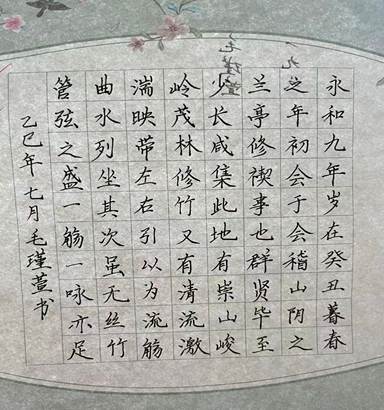 永和九年岁在癸丑暮春
之年初会于会稽山阴之
兰亭修禊事也群贤毕至
少长咸集此地有崇山峻
岭茂林修竹又有清流激
湍映带左右引以为流觞
曲水列坐其次虽无丝竹
管弦之盛一觞一咏亦足
乙巳年七月毛瑾萱书